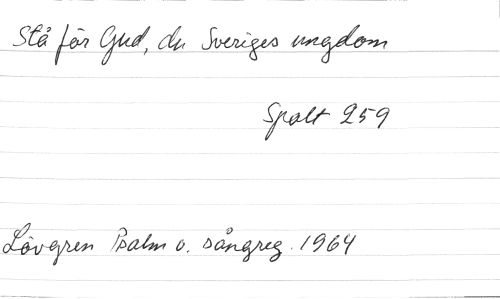 Stå för Gud, du Sveriges ungdom
Spalt 259
Lövgren Psalm o. sångreg. 1964